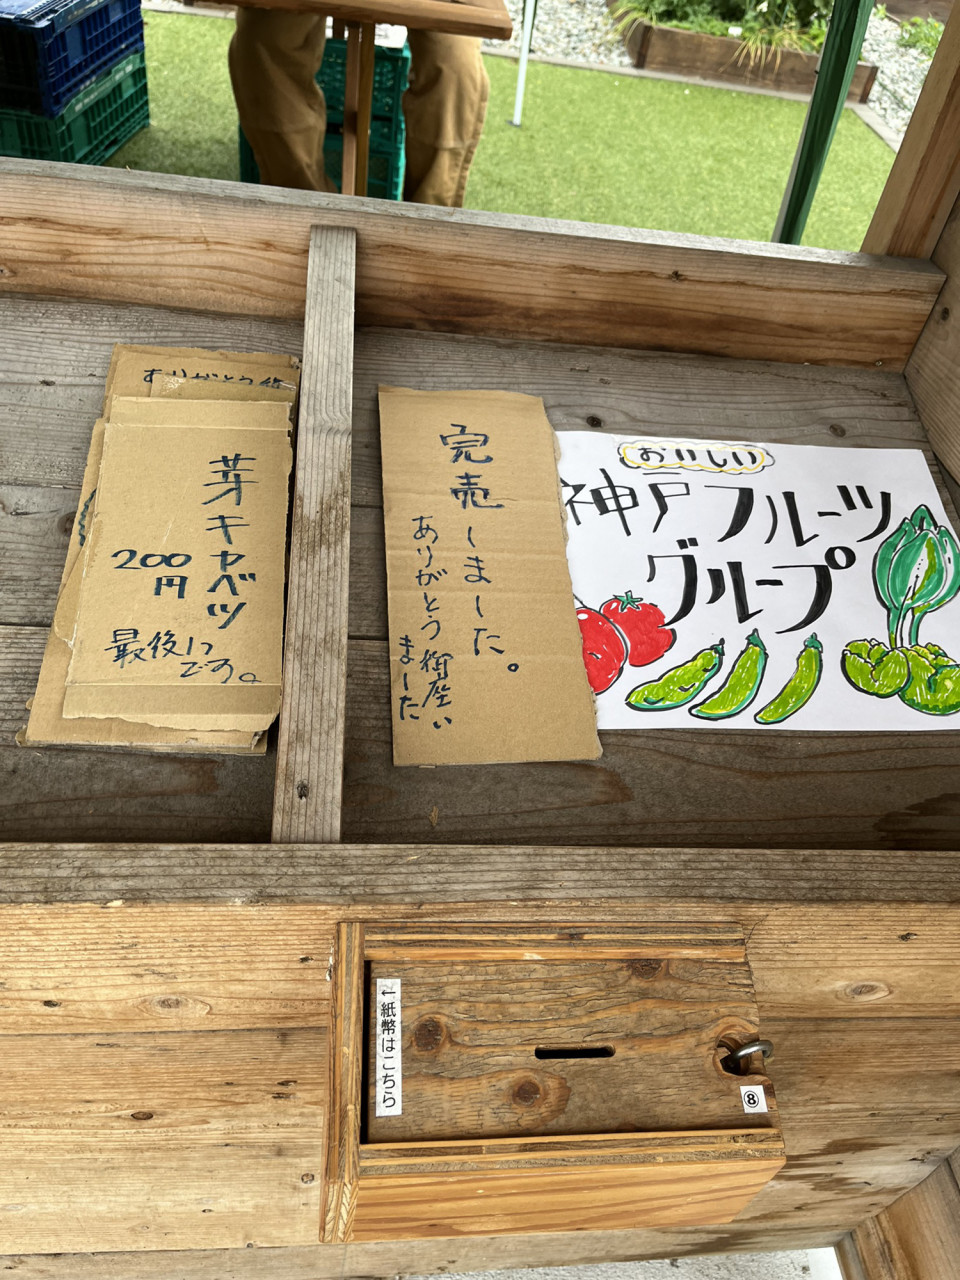 おいしい
神戸フルーツ
グループ
完売しました。
ありがとう御座い
ました
ありがとう
芽キャベツ
200
円
最後
です。
←紙幣はこちら
⑧